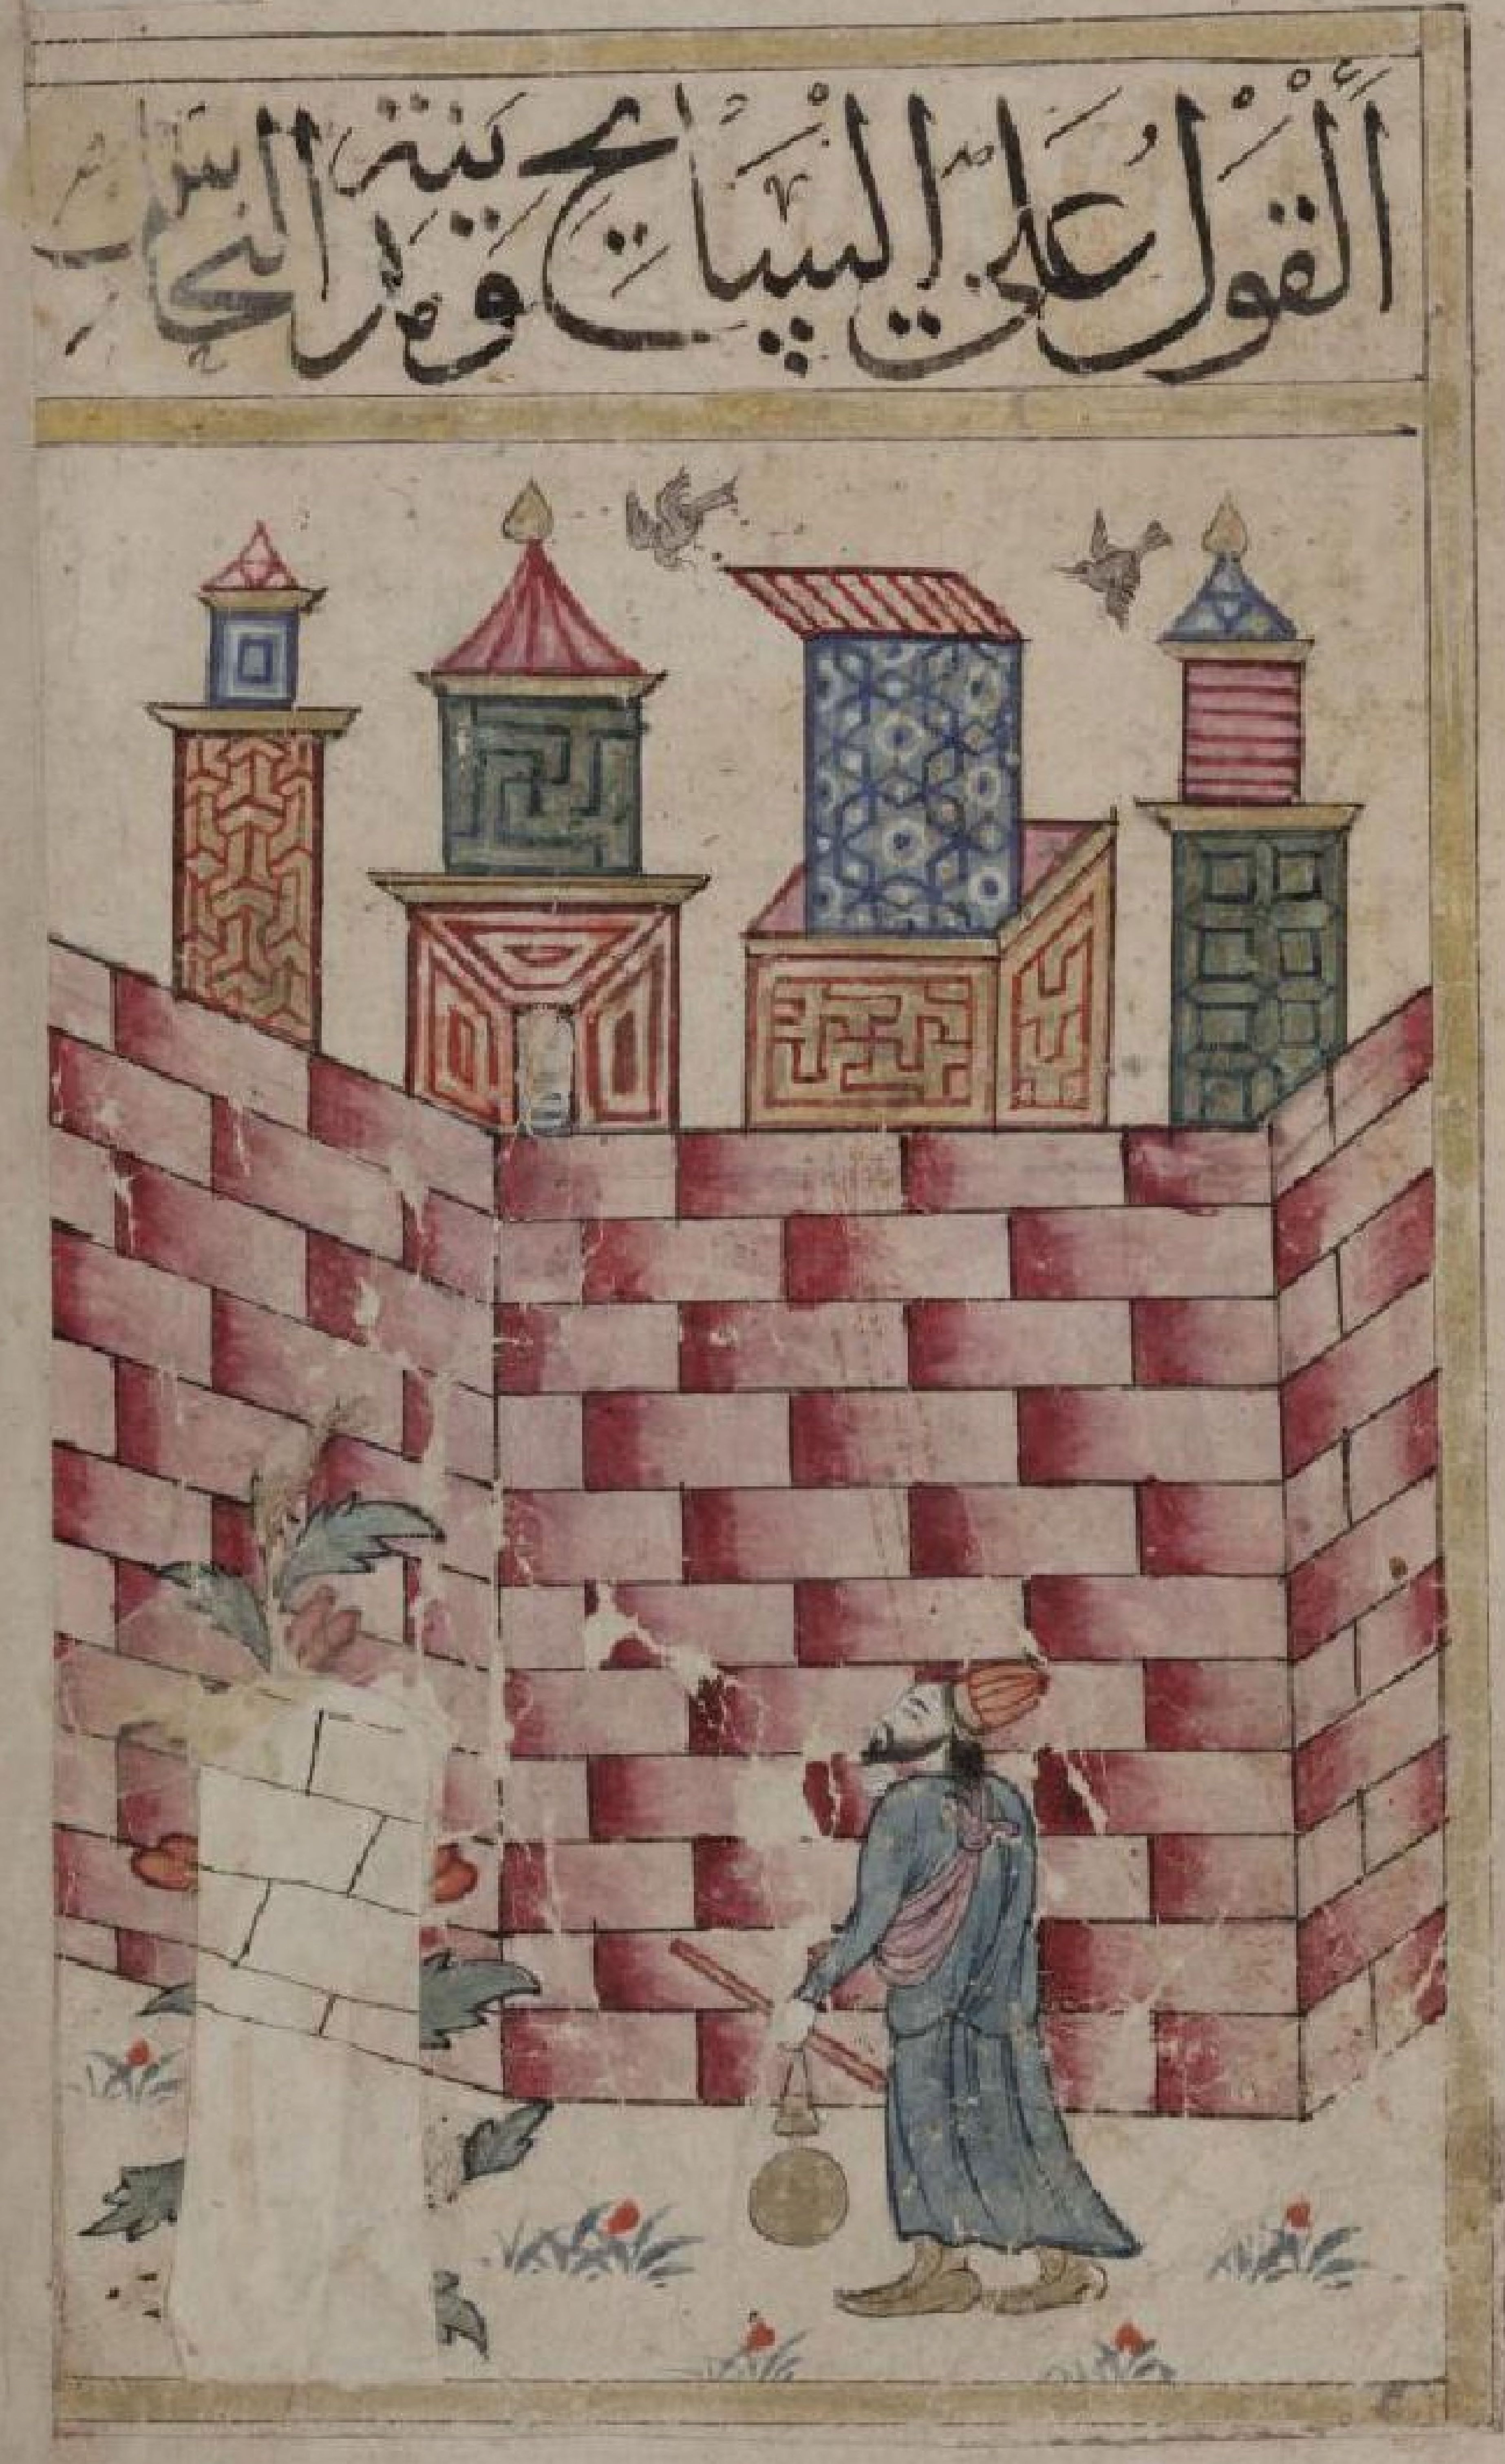 القول علي السايح ومدينة النحاس